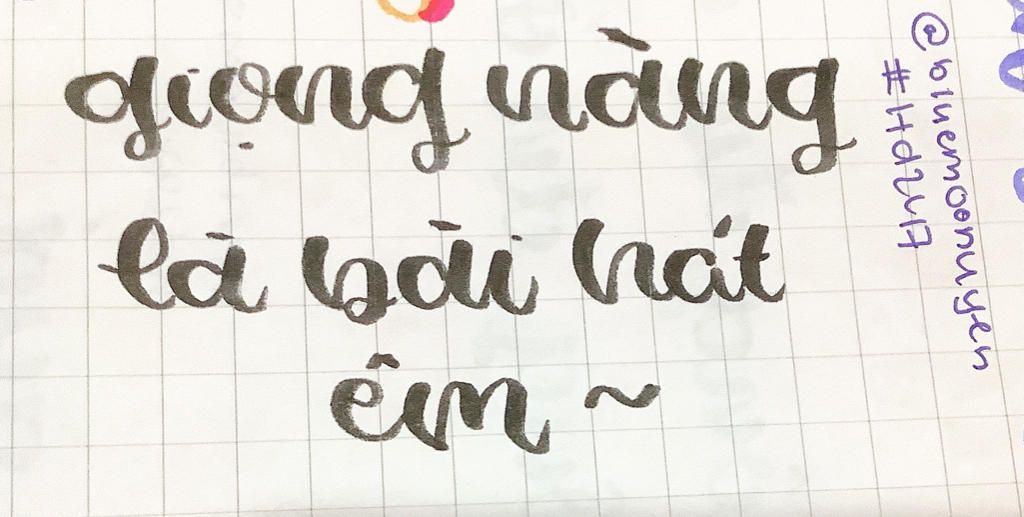 giọng nàng
là bài hát
êm ~
@bluemoonuyen
#Hd2417